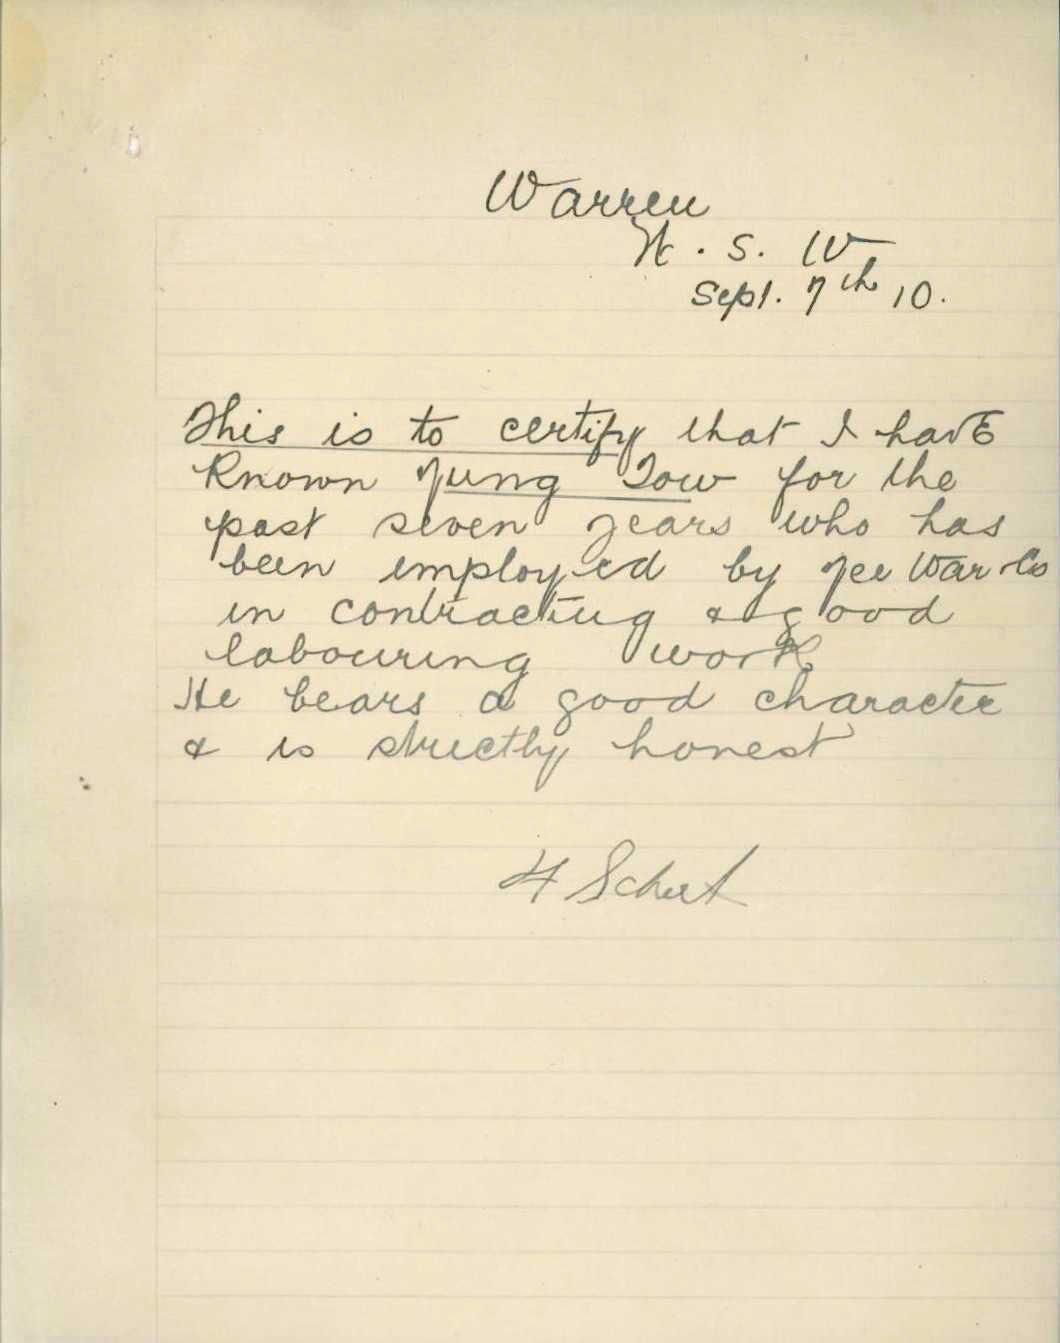 Warren
N. S. W
Sept. 7th 10.
This is to certify that I have
known Yung Tow for the
past seven years who has
been employed by Yee War & Co
in contracting & good
labouring work
He bears a good character
& is strictly honest
H